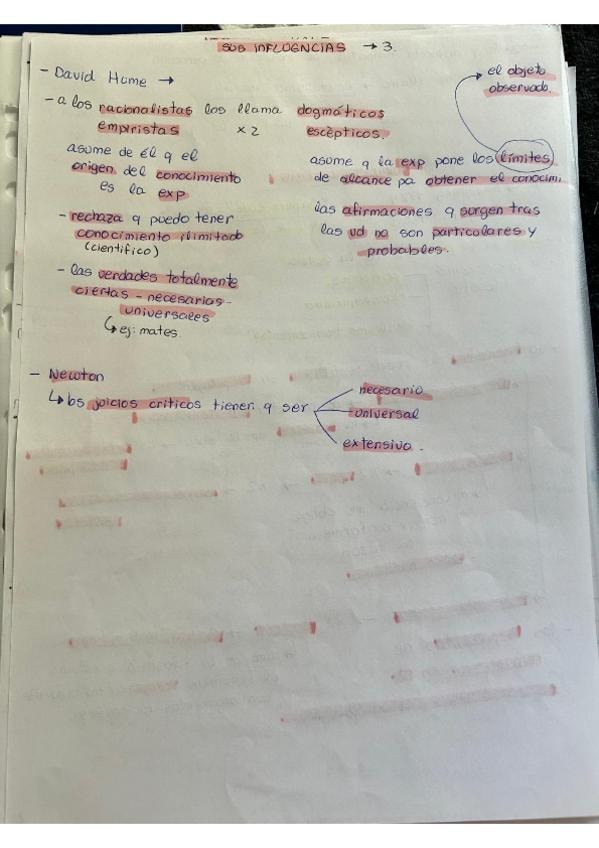 SUS INFLUENCIAS → 3.
- David Hume →
el objeto
observado.
- a los racionalistas los llama dogmáticos
empiristas x2 escépticos.
asume de él q el
origen del conocimiento
es la exp
asume q la exp pone los límites
de alcance pa obtener el conocim.
- rechaza q puedo tener
conocimiento ilimitado
(científico)
las afirmaciones q surgen tras
las ud no son particulares y
probables.
- las verdades totalmente
ciertas - necesarias -
universales
↳ ej: mates.
- Newton
↳ los juicios críticos tienen q ser
necesario
universal
extensivo.